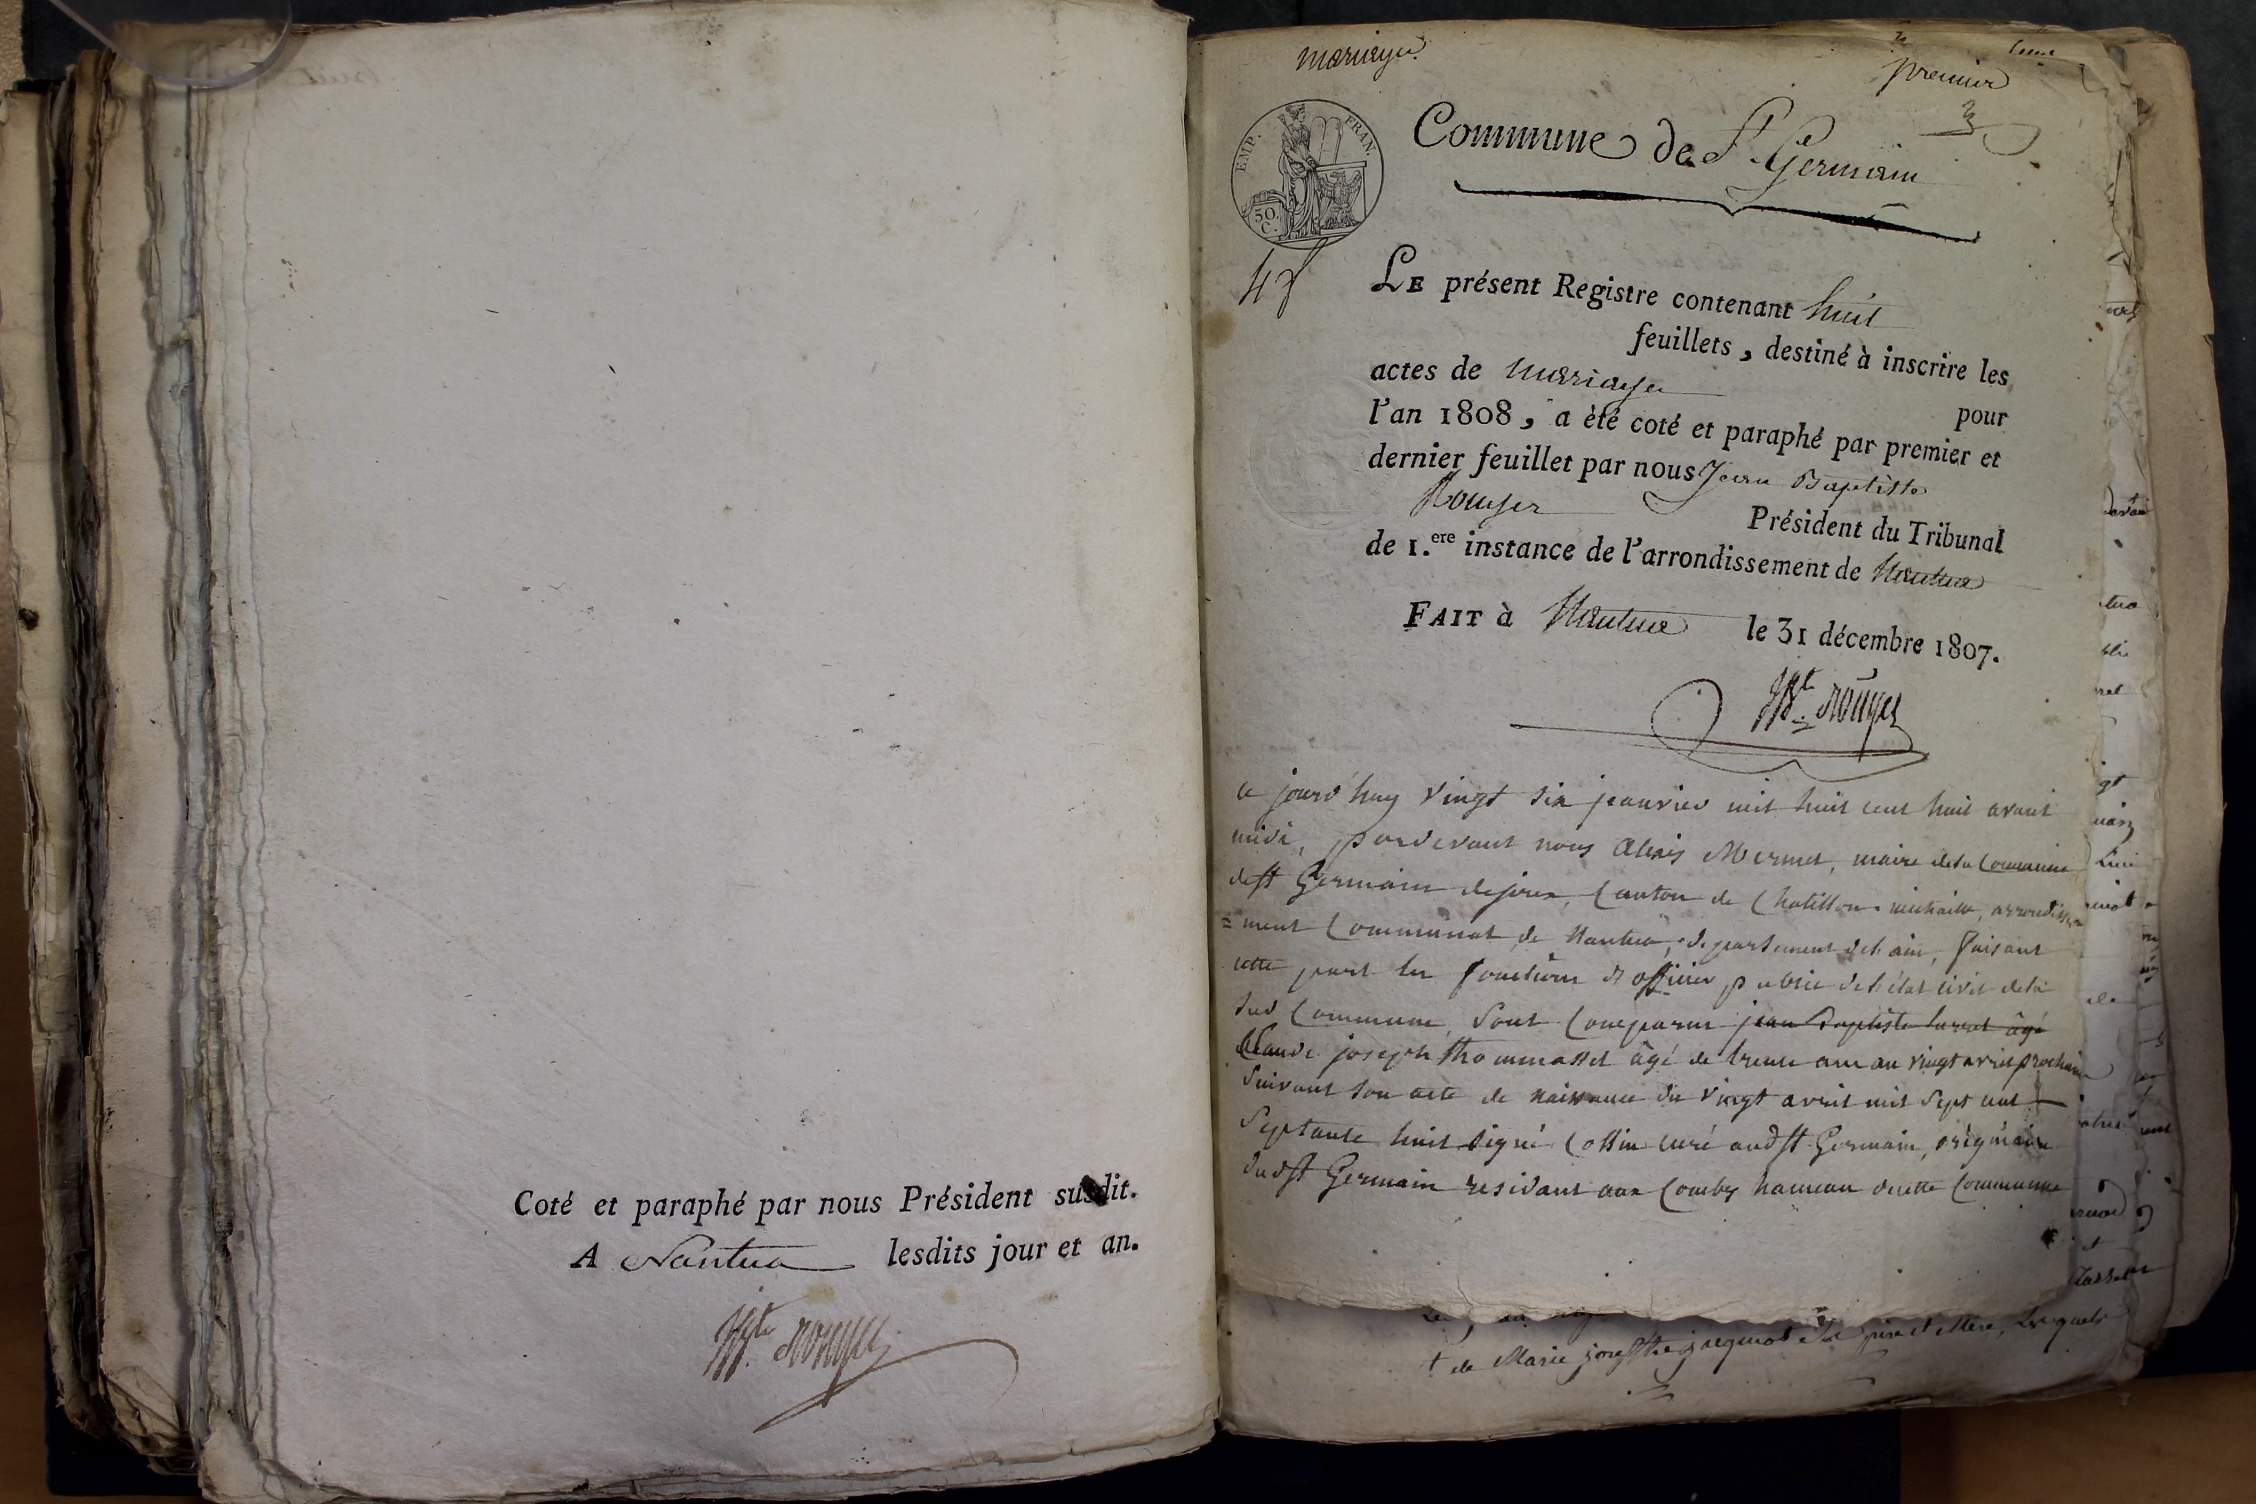 Coté et paraphé par nous Président susdit.
A Nantua lesdits jour et an.
JBte Rouyer
mariage
premier
EMP. FRAN.
50. C.
Commune de St Germain
LE présent Registre contenant huit
feuillets, destiné à inscrire les
actes de mariage pour
l'an 1808, a èté coté et paraphé par premier et
dernier feuillet par nous Jean Baptiste
Rouyer Président du Tribunal
de 1.ere instance de l'arrondissement de Nantua
FAIT à Nantua le 31 décembre 1807.
JBte Rouyer
ce jourd'huy vingt six janvier mil huit cent huit avant
midi, pardevant nous Alexis Mermet, maire de la Commune
de st Germain de joux, Canton de Chatillon michaille, arrondisse
=ment Communal de Nantua, departement de l'ain, faisant
cette part les fonctions d'officier public de l'état civil de la
sud Commune, sont Comparus jean Baptiste burret âgé
Claude joseph thommasset âgé de trente ans au vingt avril prochain
suivant son acte de naissance du vingt avril mil sept cent
septante huit signé Cottin curé aud st Germain, origínaire
dud st Germain residant aux Combes hameau de cette Commune
t de Marie josephte jacquinod ses pere et Mere, Lesquels